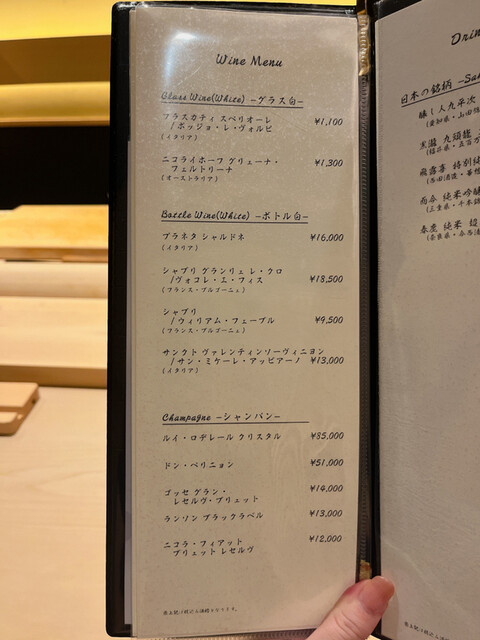 Wine Menu
Glass Wine(White) -グラス白-
フラスカティ スペリオーレ
/ポッジョ・レ・ヴォルピ ¥1,100
(イタリア)
ニコライホーフ グリューナ・
フェルトリーナ ¥1,300
(オーストラリア)
Bottle Wine(White) -ボトル白-
プラネタ シャルドネ ¥16,000
(イタリア)
シャブリ グランリュ レ・クロ
/ヴォコレ・エ・フィス ¥18,500
(フランス・ブルゴーニュ)
シャブリ
/ウィリアム・フェーブル ¥9,500
(フランス・ブルゴーニュ)
サンクト ヴァレンティンソーヴィニヨン
/サン・ミケーレ・アッピアーノ ¥13,000
(イタリア)
Champagne -シャンパン-
ルイ・ロデレール クリスタル ¥85,000
ドン・ペリニョン ¥51,000
ゴッセ グラン・
レセルヴ・ブリュット ¥14,000
ランソン ブラックラベル ¥13,000
ニコラ・フィアット
ブリュット レセルヴ ¥12,000
表示額は税込み価格となります。
Drin
日本の銘柄 -Sa
醸し人九平次
(愛知県・山田
黒龍 九頭龍
(福井県・五百万
飛露喜 特別純
而今 純米吟醸
(三重県・千本錦
春鹿 純米 超
(奈良県・